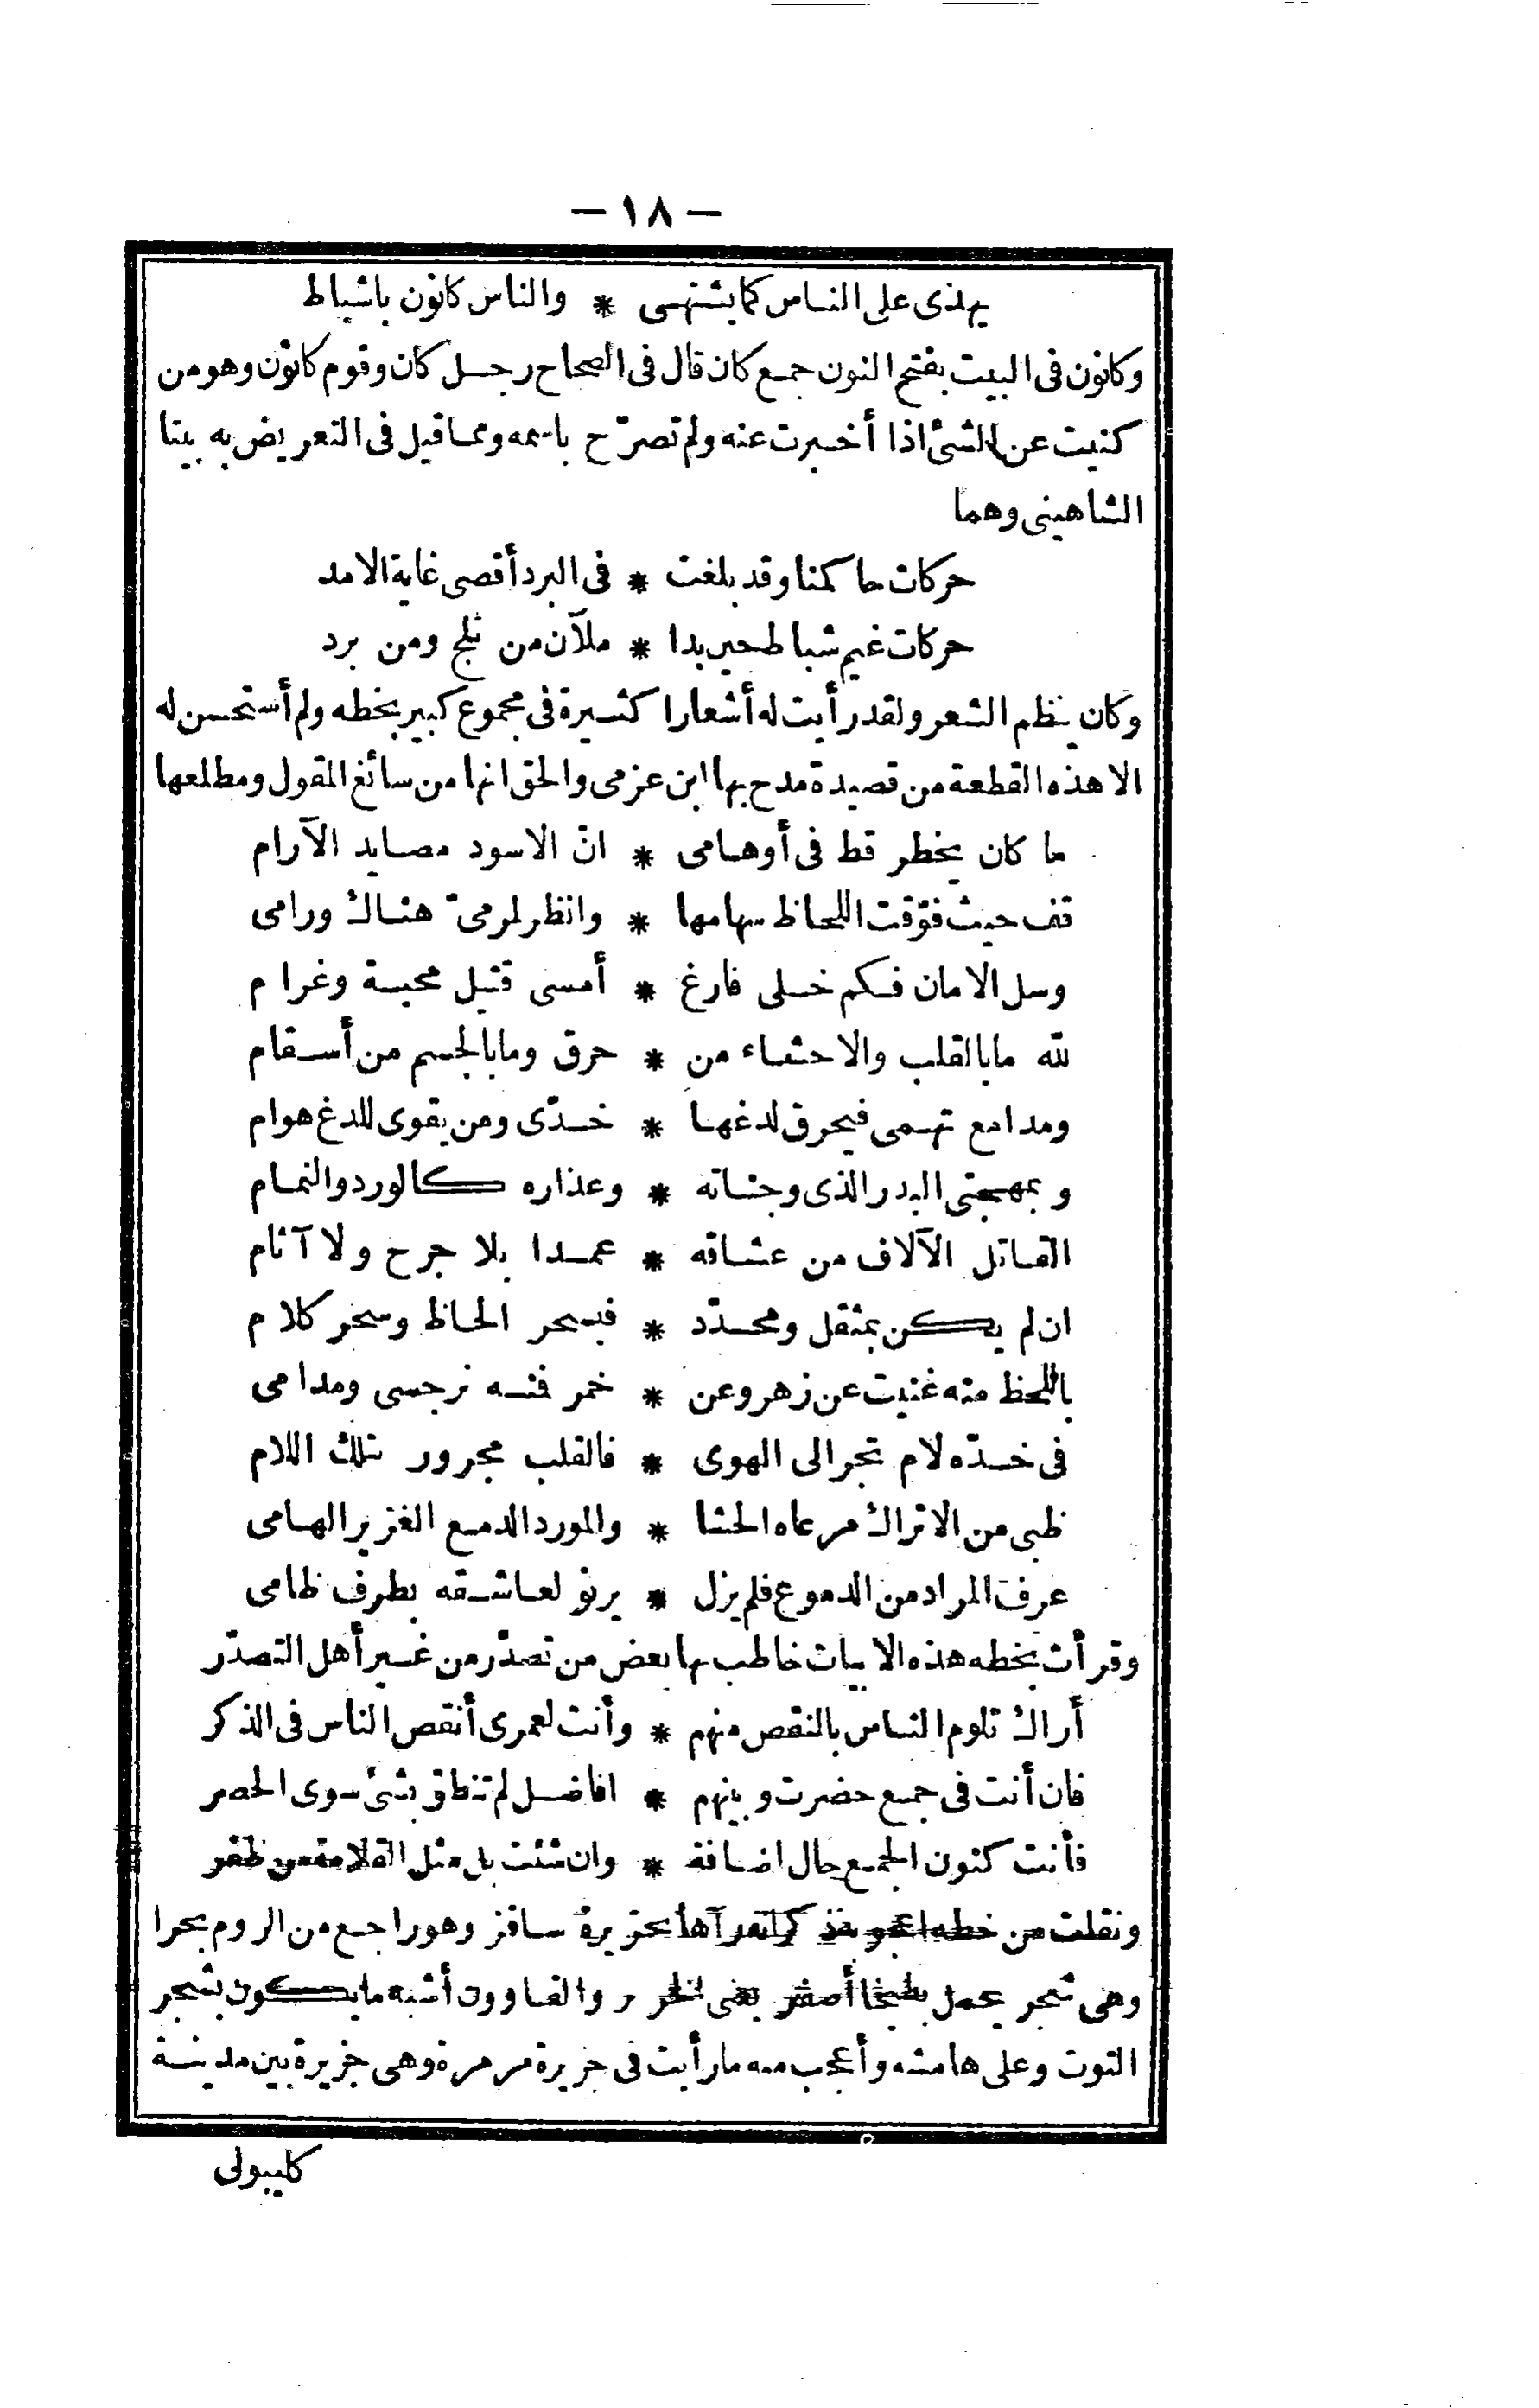 — ١٨ —
يهذى على الناس كما يشتهى * والناس كانون باشباط
وكانون فى البيت بفتح النون جمع كان قال فى الصحاح رجل كان وقوم كانون وهو من
كنيت عن الشئ اذا أخبرت عنه ولم تصرّح باسمه ومما قيل فى التعريض به بيتا
الشاهينى وهما
حركات حاكمنا وقد بلغت * فى البرد أقصى غاية الامد
حركات غيم شباط حين بدا * ملآن من ثلج ومن برد
وكان ينظم الشعر ولقد رأيت له أشعارا كثيرة فى مجموع كبير بخطه ولم أستحسن له
الا هذه القطعة من قصيدة مدح بها ابن عزمى والحق انها من سائغ المقول ومطلعها
ما كان يخطر قط فى أوهامى * انّ الاسود مصايد الآرام
قف حيث فوّقت اللحاظ سهامها * وانظر لمرمىّ هناك ورامى
وسل الامان فكم خلى فارغ * أمسى قتيل محبة وغرام
لله ما بالقلب والاحشاء من * حرق وما بالجسم من أسقام
ومدامع تهمى فيحرق لدغها * خدّى ومن يقوى للدغ هوام
وبمهجتى البدر الذى وجناته * وعذاره كالورد والنمام
القاتل الآلاف من عشاقه * عمدا بلا جرح ولا آثام
ان لم يكن بمثقل ومحدّد * فبسحر الحاظ وسحر كلام
باللحظ منه غنيت عن زهر وعن * خمر ففيه نرجسى ومدامى
فى خدّه لام تجر الى الهوى * فالقلب مجرور بتلك اللام
ظبى من الاتراك مرعاه الحشا * والمورد الدمع الغزير الهامى
عرف المراد من الدموع فلم يزل * يرنو لعاشقه بطرف ظامى
وقرأت بخطه هذه الابيات خاطب بها بعض من تصدّر من غير أهل التصدّر
أراك تلوم الناس بالنقص منهم * وأنت لعمرى أنقص الناس فى الذكر
فان أنت فى جمع حضرت وبينهم * افاضل لم تنطق بشئ سوى الحصر
فأنت كنون الجمع حال اضافة * وان شئت بل مثل القلامة من ظفر
ونقلت من خطه اعجوبة ذكر انه رآها بجزيرة ساقز وهو راجع من الروم بحرا
وهى شجر يحمل بطيخا أصفر يعنى والقاوون أشبه ما يكون بشجر
التوت وعلى هامشه وأعجب منه ما رأيت فى جزيرة مرمرة وهى جزيرة بين مدينة
كليبولى